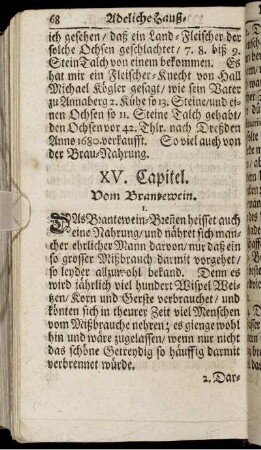 68 Adeliche Hauß-
ich gesehen / daß ein Land-Fleischer der
solche Ochsen geschlachtet / 7. 8. biß 9.
Stein Talch von einem bekommen. Es
hat mir ein Fleischer-Knecht von Hall
Michael Kögler gesagt / wie sein Vater
zu Annaberg 2. Kühe so 13. Steine / und ei-
nen Ochsen so 11. Steine Talch gehabt /
den Ochsen vor 42. Thlr. nach Dreßden
Anno 1680. verkaufft. So viel auch von
der Brau-Nahrung.
XV. Capitel.
Vom Brantewein.
1.
DAs Brantewein-Breñen heisset auch
eine Nahrung / und nähret sich man-
cher ehrlicher Mann darvon / nur daß ein
so grosser Mißbrauch darmit vorgehet /
so leyder allzuwohl bekand. Denn es
wird jährlich viel hundert Wispel Wei-
tzen / Korn und Gerste verbrauchet / und
könten sich in theurer Zeit viel Menschen
vom Mißbrauche nehren; es gienge wohl
hin und wäre zugelassen / wenn nur nicht
das schöne Getreydig so häuffig darmit
verbrennet würde.
2. Dar-